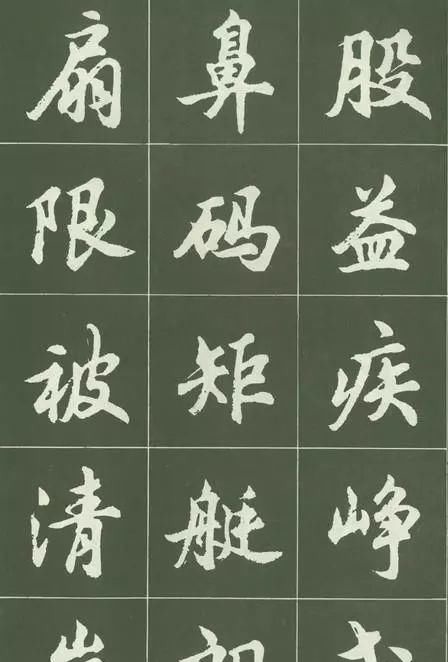 扇鼻股
限码益
被矩疾
清艇峥